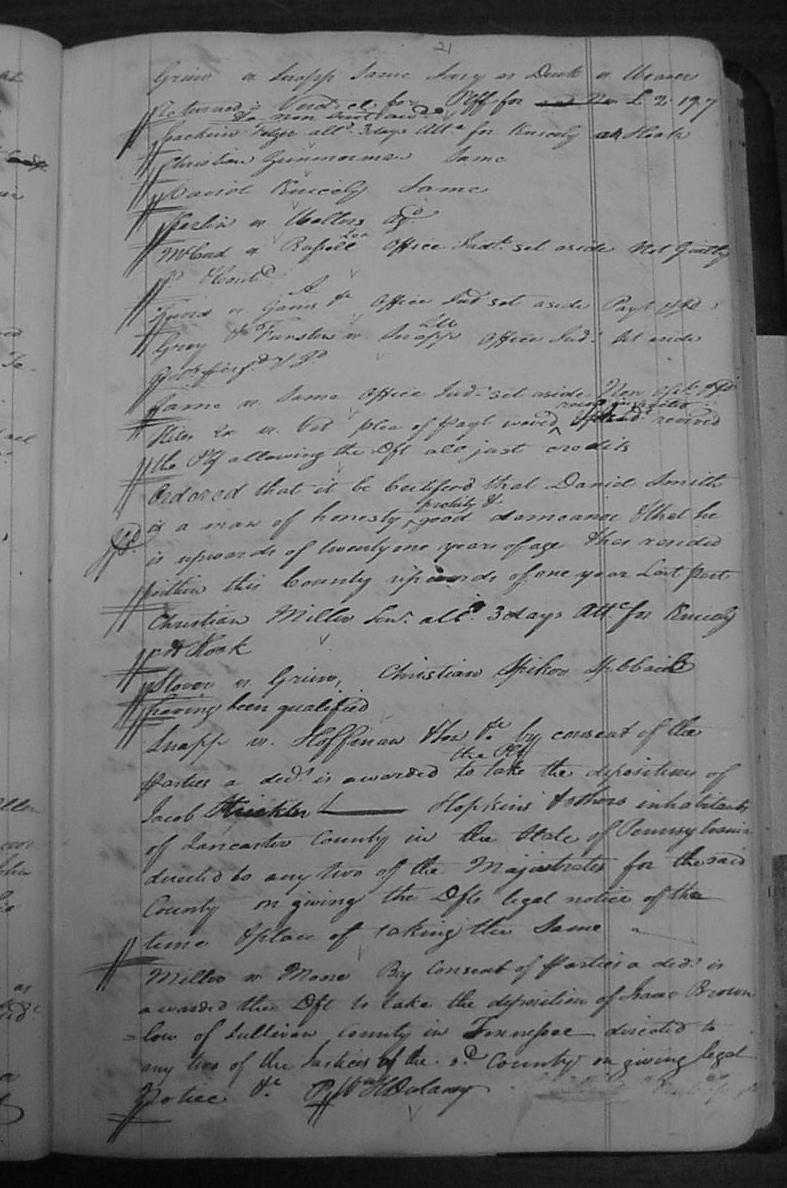 21
Grim vs Snapp Same Jury as Dusk vs Weaver
Returned a Verdict for Plff for £ 2.19.7
Joachim alld. 3 days Atte for Knicely ads Hook
Christian Zimmerman Same
David Knicely Same
vs Walters
McCord vs Russell Office Judt. set aside Not Guilty
& Contd.
vs Gains &c Office Judt set aside Payt
Grey & Funston vs Snapp Office Judt. set aside
Same vs Same Office Judt set aside Non
Stiles vs plea of payt waved
the Plf allowing the Dft all just credits
Ordered that it be Certifyed that Daniel Smith
is a man of honesty probity & good demeanor & that he
is upwards of twenty one years of age & has resided
within this County upwards of one year Last past
Christian Miller Senr. alld. 3 days Atte for Knicely
ads Hook
Stover vs Grim, Christian
having been qualified
Snapp vs. Hoffman &c by consent of the
parties a deds is awarded the Plf to take the depositions of
Jacob Strickler Hopkins & others inhabitants
of Lancaster County in the State of Pennsylvania
directed to any two of the Majistrates for the said
County on giving the Dfts legal notice of the
time & place of taking the Same
Miller vs Moore By Consent of parties a deds is
awarded the Dft to take the deposition of Isaac Brown
=low of Sullivan County in Tennessee directed to
any two of the Justices of the sd County on giving legal
Notice &c